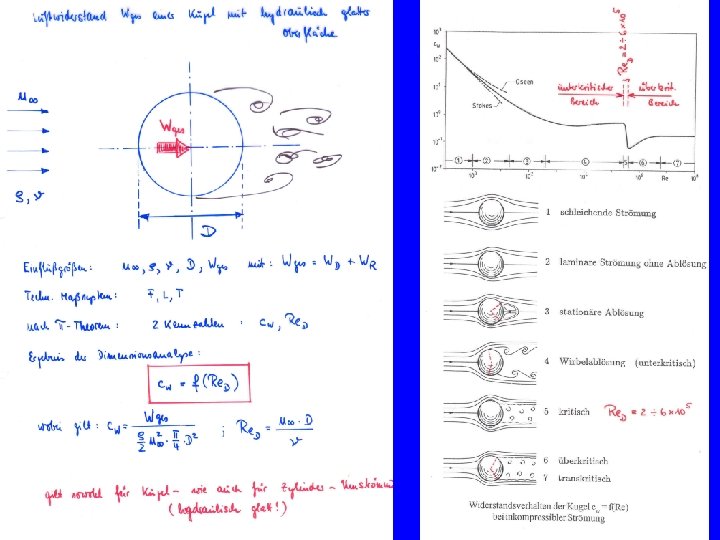 Luftwiderstand Wges einer Kugel mit hydraulisch glatter
Oberfläche
u∞
Wges
ρ, ν
D
Einflußgrößen: u∞, ρ, ν, D, Wges mit: Wges = WD + WR
Techn. Maßsystem: F, L, T
nach π-Theorem: 2 Kennzahlen: cw, ReD
Ergebnis der Dimensionsanalyse:
cw = f(ReD)
wobei gilt: cw = Wges / (ρ/2 u∞² · π/4 · D²) ; ReD = u∞ · D / ν
gilt sowohl für Kugel- wie auch für Zylinder-Umström
(hydraulisch glatt!)
ReD = 2 ÷ 6×10⁵
cw
Oseen
Stokes
unterkritischer Bereich
überkrit. Bereich
1 2 3 4 5 6 7
Re
1 schleichende Strömung
2 laminare Strömung ohne Ablösung
3 stationäre Ablösung
4 Wirbelablösung (unterkritisch)
5 kritisch ReD = 2 ÷ 6×10⁵
6 überkritisch
7 transkritisch
Widerstandsverhalten der Kugel cw = f(Re)
bei inkompressibler Strömung